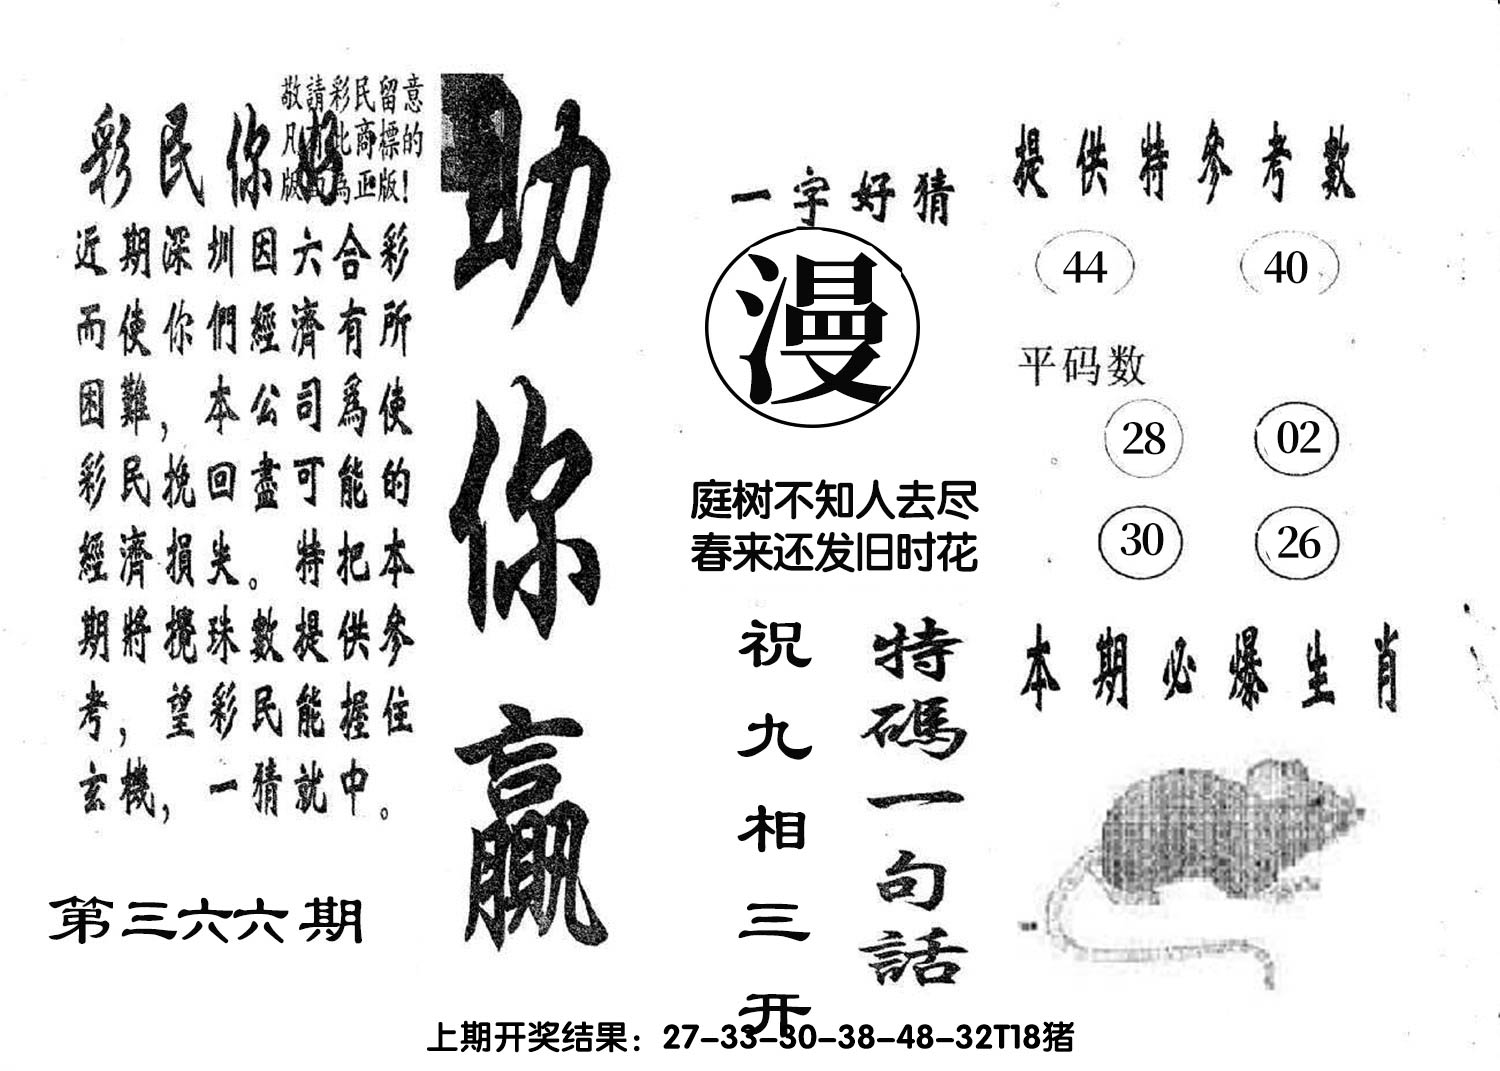 敬請彩民留意
凡有此商標的
版面為正版！
彩民你好
近期深圳因六合彩
而使你們經濟有所
困難，本公司爲使
彩民挽回盡可能的
經濟損失。特把本
期將攪珠數提供參
考，望彩民能握住
玄機，一猜就中。
第三六六期
助你贏
一字好猜
漫
庭树不知人去尽
春来还发旧时花
特碼一句話
祝九相三开
提供特參考數
44 40
平码数
28 02
30 26
本期必爆生肖
上期开奖结果：27-33-30-38-48-32T18猪